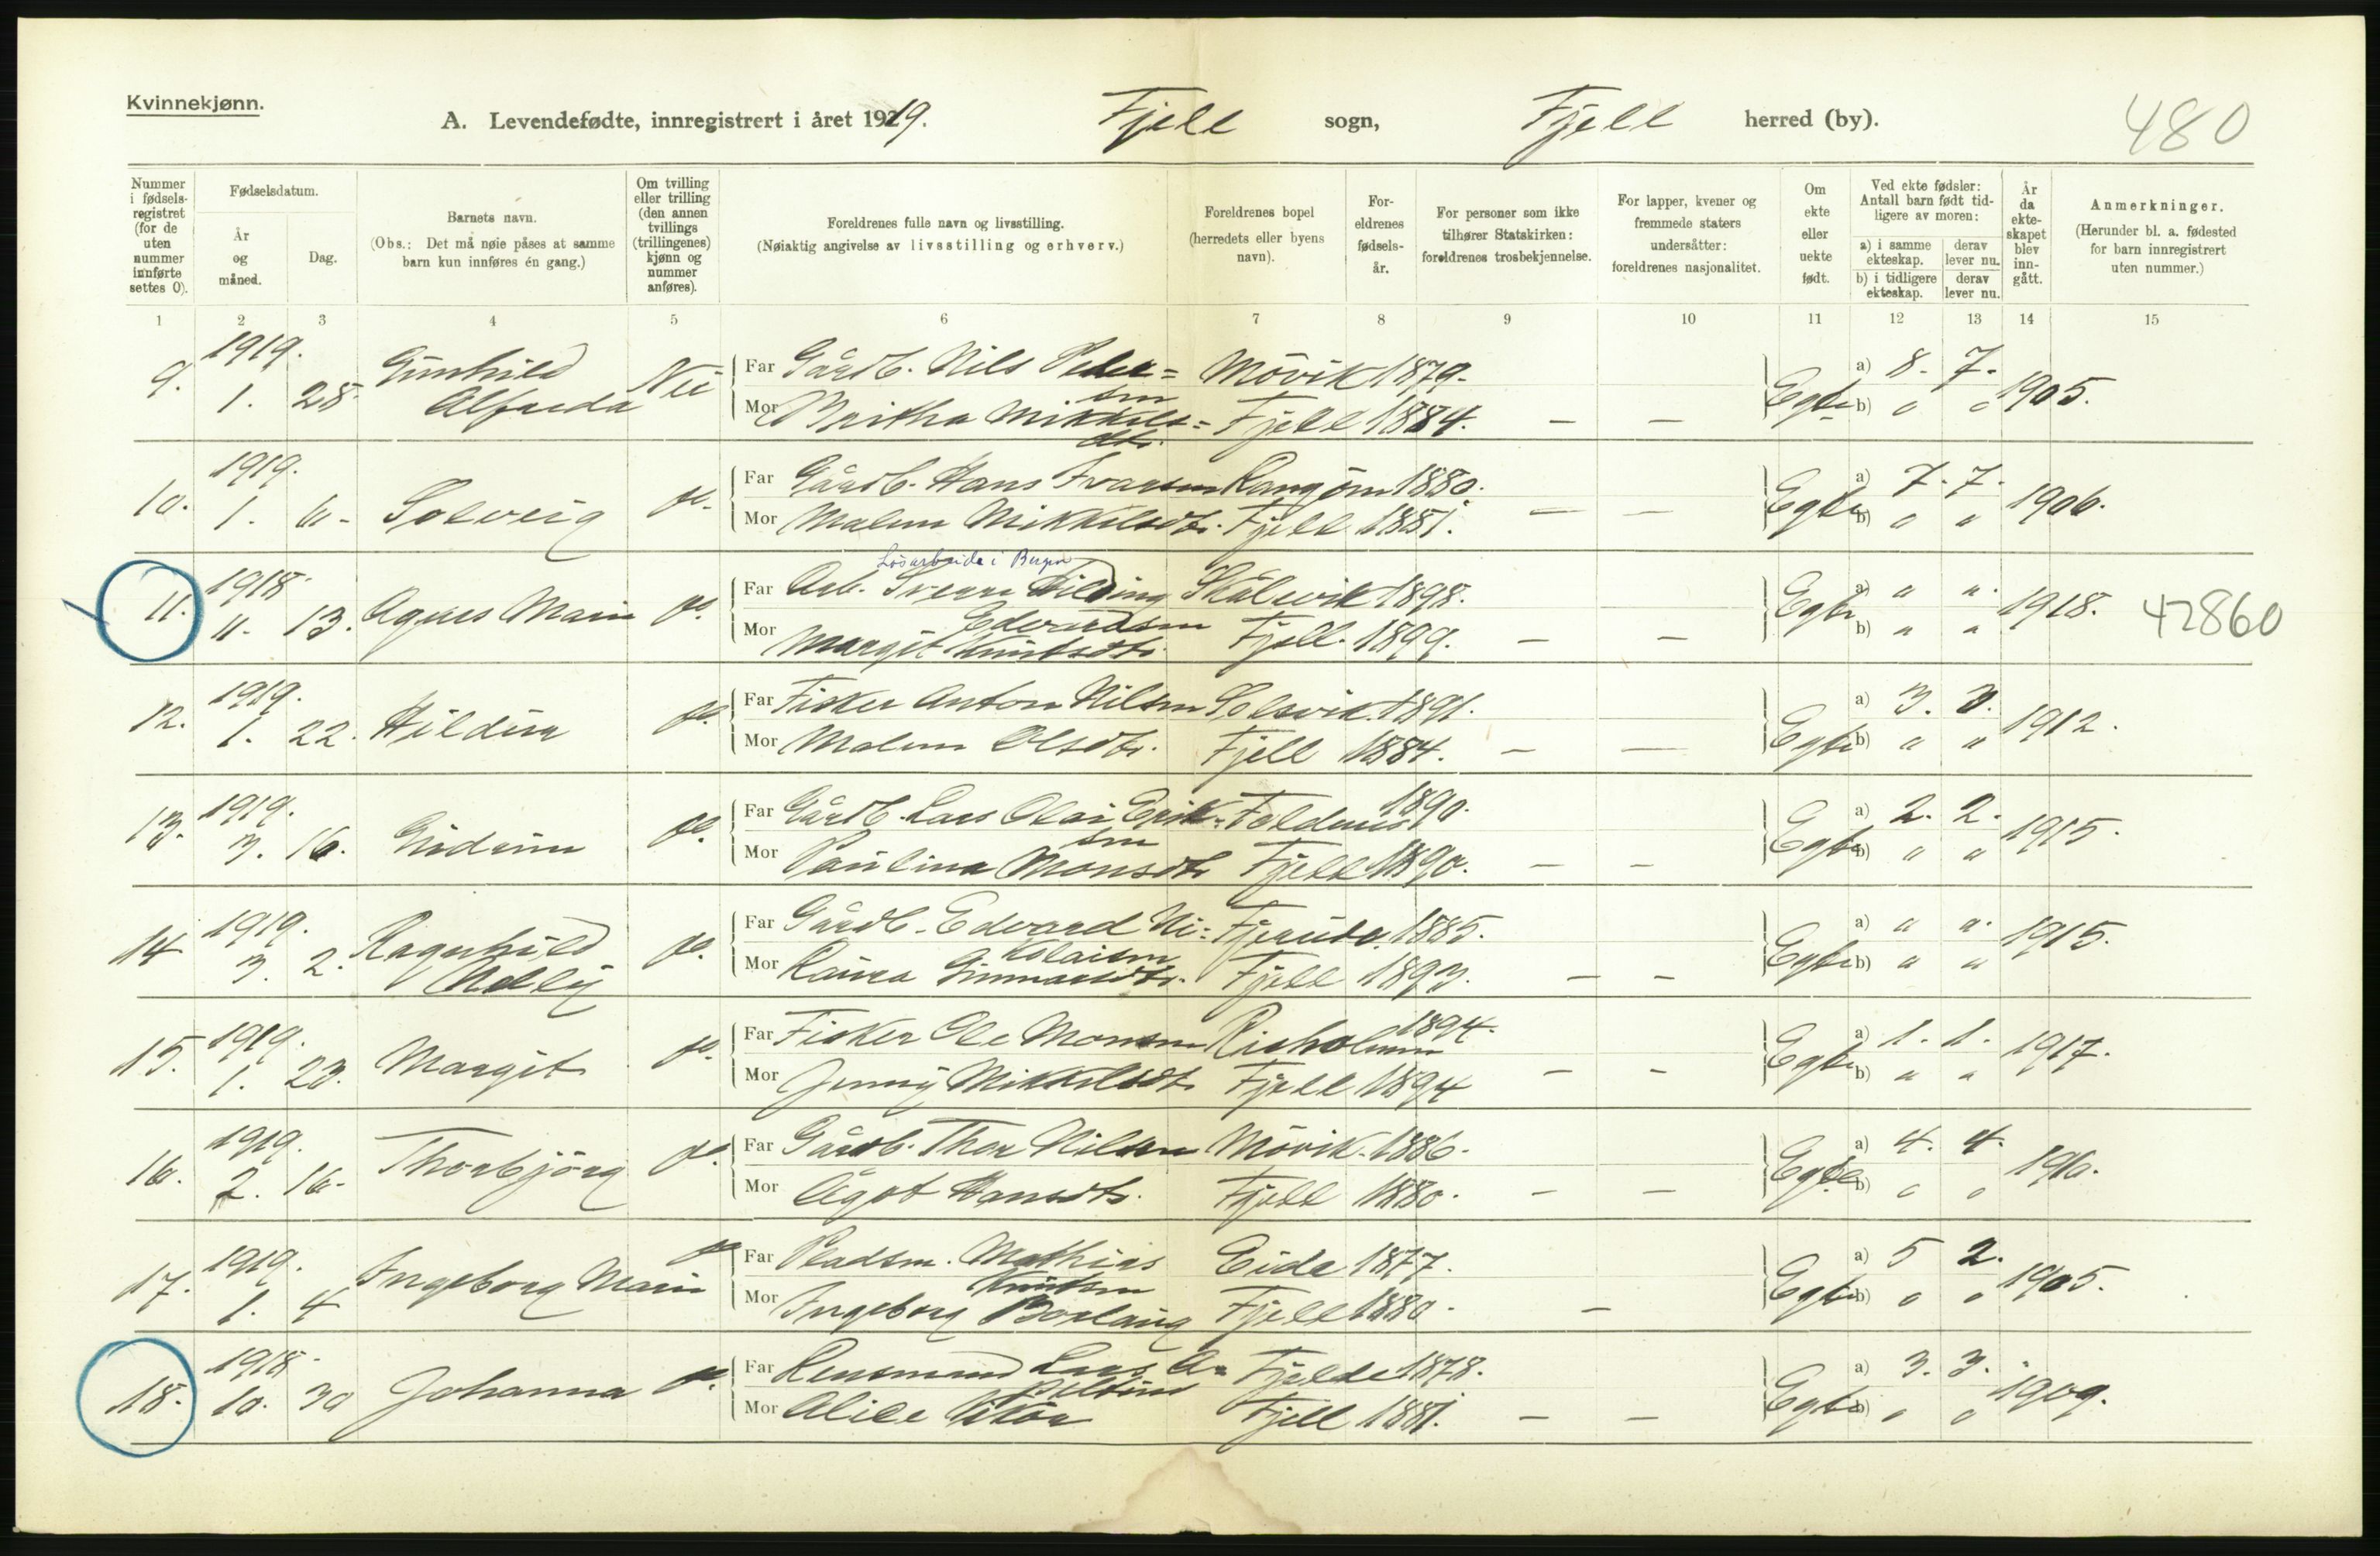 Kvinnekjønn.
A. Levendefødte, innregistrert i året 1919. Fjell sogn, Fjell herred (by). 480
Nummer i fødsels-registret (for de uten nummer innførte settes 0).
Fødselsdatum.
År og måned.
Dag.
Barnets navn.
(Obs.: Det må nøie påses at samme barn kun innføres én gang.)
Om tvilling eller trilling (den annen tvillings (trillingenes) kjønn og nummer anføres).
Foreldrenes fulle navn og livsstilling.
(Nøiaktig angivelse av livsstilling og erhverv.)
Foreldrenes bopel (herredets eller byens navn).
For-eldrenes fødsels-år.
For personer som ikke tilhører Statskirken: foreldrenes trosbekjennelse.
For lapper, kvener og fremmede staters undersåtter: foreldrenes nasjonalitet.
Om ekte eller uekte født.
Ved ekte fødsler: Antall barn født tid-ligere av moren:
a) i samme ekteskap. derav lever nu.
b) i tidligere ekteskap. derav lever nu.
År da ekte-skapet blev inn-gått.
Anmerkninger.
(Herunder bl. a. fødested for barn innregistrert uten nummer.)
1 2 3 4 5 6 7 8 9 10 11 12 13 14 15
9. 1919. 1. 28. Gunhild Alfreda Nei Far Gårdb. Nils Peder=sen Mövik 1879. Egte a) 8. 7. 1905.
Mor Britha Mikkels=dtr. Fjell 1884. — — b) " "
10. 1919. 1. 6. Solveig do. Far Gårdb. Hans Ivarsen Langöen 1880. Egte a) 7. 7. 1906.
Mor Malene Mikkelsdtr. Fjell 1881. — — b) " "
Lösarbeide i Bergen
11. 1918 11. 13. Agnes Marie do. Far Arb. Sverre Hilding Edvardsen Skålevik 1898. Egte a) " " 1918. 42860
Mor Margit Knutsdtr. Fjell. 1899. — — b) " "
12. 1919. 1. 22. Hildur do. Far Fisker Anton Nilsen Solsvik 1891. Egte a) 3. 3. 1912.
Mor Malene Olsdtr. Fjell 1884. — — b) " "
13. 1919. 3. 16. Gudrun do. Far Gårdb. Lars Olai Erik=sen Foldnes 1890. Egte a) 2. 2. 1915.
Mor Paulina Monsdtr Fjell 1890. — — b) " "
14 1919. 3. 2. Ragnhild do. Far Gårdb. Edvard Ni=kolaisen 1885. Egte a) " " 1915.
Mor Laura Fjell 1893. — — b) " "
15. 1919. 1. 23. Margit do. Far Fisker Ole Monsen Risholmen 1894. Egte a) 1. 1. 1917.
Mor Jenny Mikkelsdtr Fjell 1894 — — b) " "
16. 1919. 2. 16. Thorbjörg do. Far Gårdb. Thor Nilsen Mövik. 1886. Egte a) 4. 4. 1910.
Mor Ågot Hansdtr. Fjell 1880. — — b) " "
17. 1919. 1. 4 Ingeborg Marie do Far Pladsm. Mathias Knutsen Eide 1877. Egte a) 5 2. 1905.
Mor Ingeborg Fjell 1880. — b) " "
18. 1918 10. 30 Johanna do. Far Lensmand Lars Fjelde 1878. Egte a) 3. 3. 1909.
Mor Alice Fjell 1881. — — b) " "